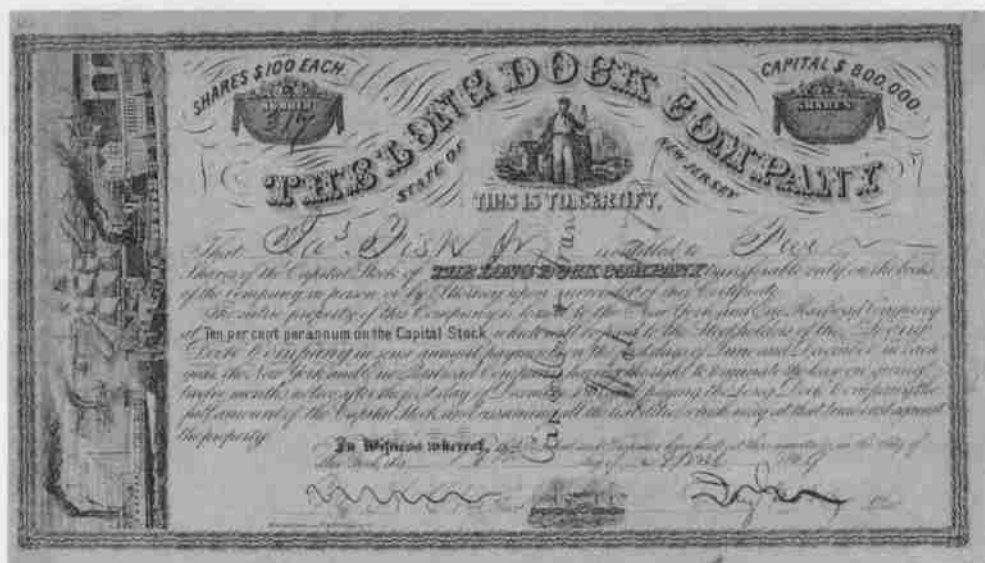 SHARES $100 EACH
CAPITAL $ 800,000.
NUMBER
317
SHARES
THE LONG DOCK COMPANY
STATE OF
NEW JERSEY
THIS IS TO CERTIFY,
That Jas Fisk Jr is entitled to Five
Shares of the Capital Stock of THE LONG DOCK COMPANY transferable only on the books
of the Company in person or by Attorney upon surrender of this Certificate
The entire property of this Company is leased to the New York and Erie Railroad Company
at Ten per cent per annum on the Capital Stock which will be paid to the Stockholders of the Long
Dock Company in semi annual payments on the days of June and December in each
year the New York and Erie Railroad Company having the right to terminate the lease on giving
twelve months notice after the first day of paying the Long Dock Company the
full amount of the Capital Stock and assuming all the liabilities which may at that time exist against
the property
In Witness whereof, the President and Treasurer have at this in the City of
New York this day of
Cancelled